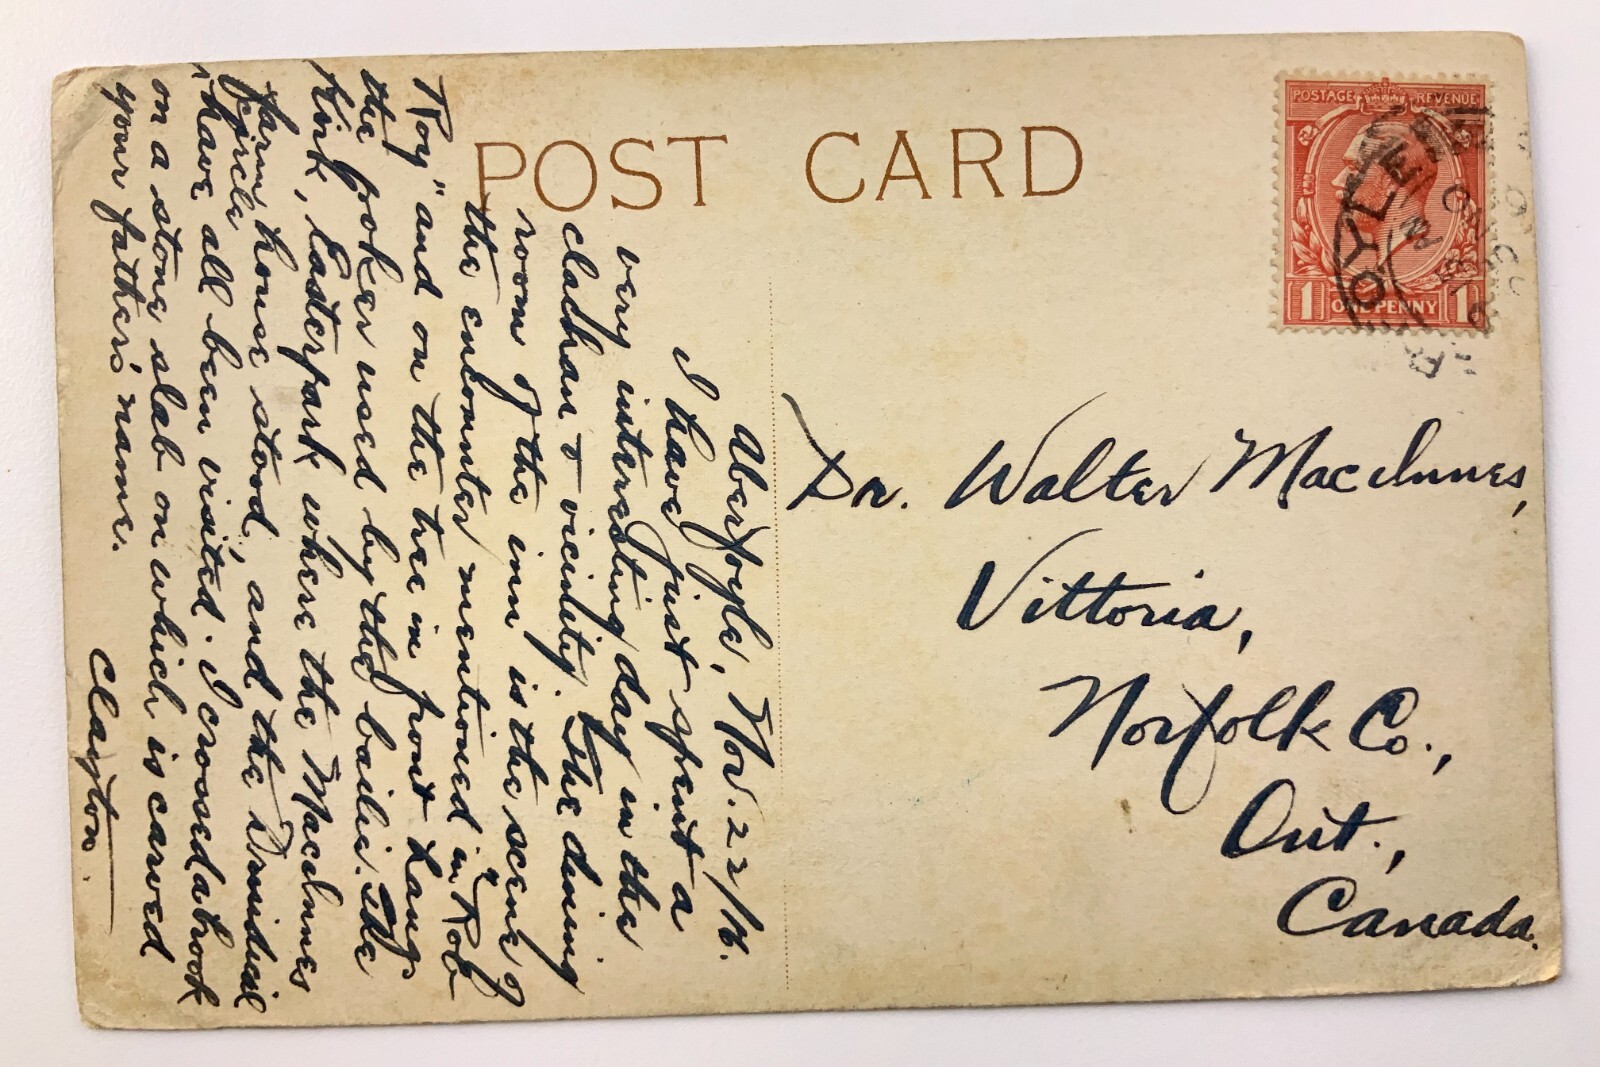 POST CARD
POSTAGE REVENUE
1 ONE PENNY 1
Aberfoyle, Nov. 22/16.
I have just spent a
very interesting day in the
clachan & vicinity. The dining
room of the inn is the scene of
the encounter mentioned in "Rob
Roy" and on the tree in front hangs
the poker used by the bailie. The
Kirk, Easterpark where the MacInnes
farm house stood, and the Druidical
circle
i have all been visited. I crossed a brook
on a stone slab on which is carved
your father's name.
Clayton.
Dr. Walter MacInnes,
Vittoria,
Norfolk Co.,
Ont.,
Canada.